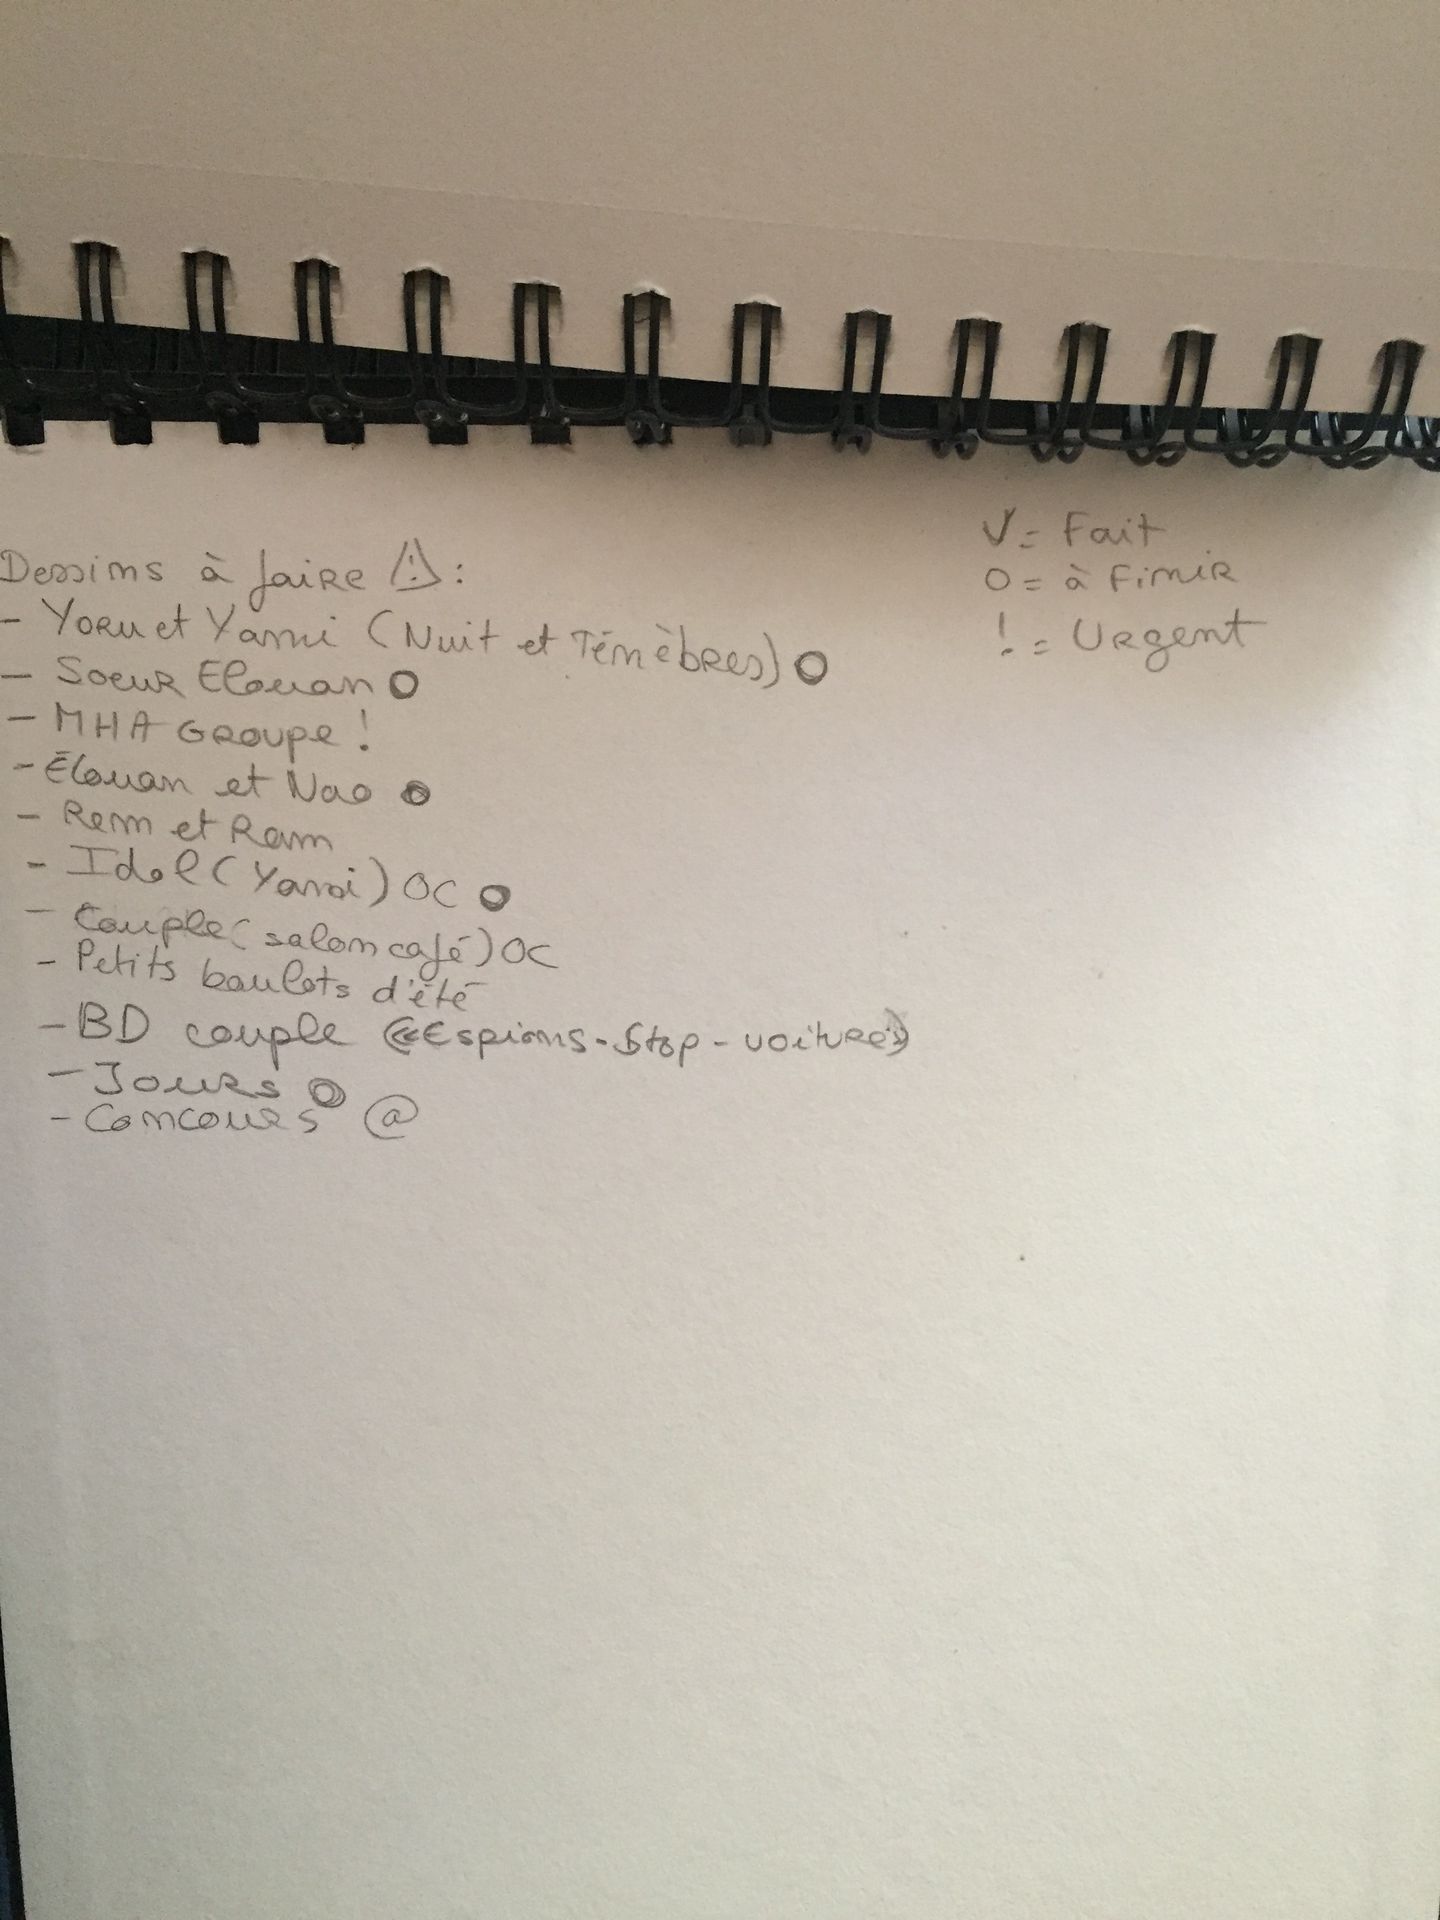 Dessins à faire ⚠ :
- Yoru et Yami (Nuit et Ténèbres) O
- Soeur Elouan O
- MHA Groupe !
- Élouan et Nao O
- Rem et Ram
- Idol (Yami) OC O
- Couple (salon café) OC
- Petits boulots d'été
- BD couple («Espions-Stop-voitures»)
- Jours O
- Concours @
V = Fait
O = à Finir
! = Urgent